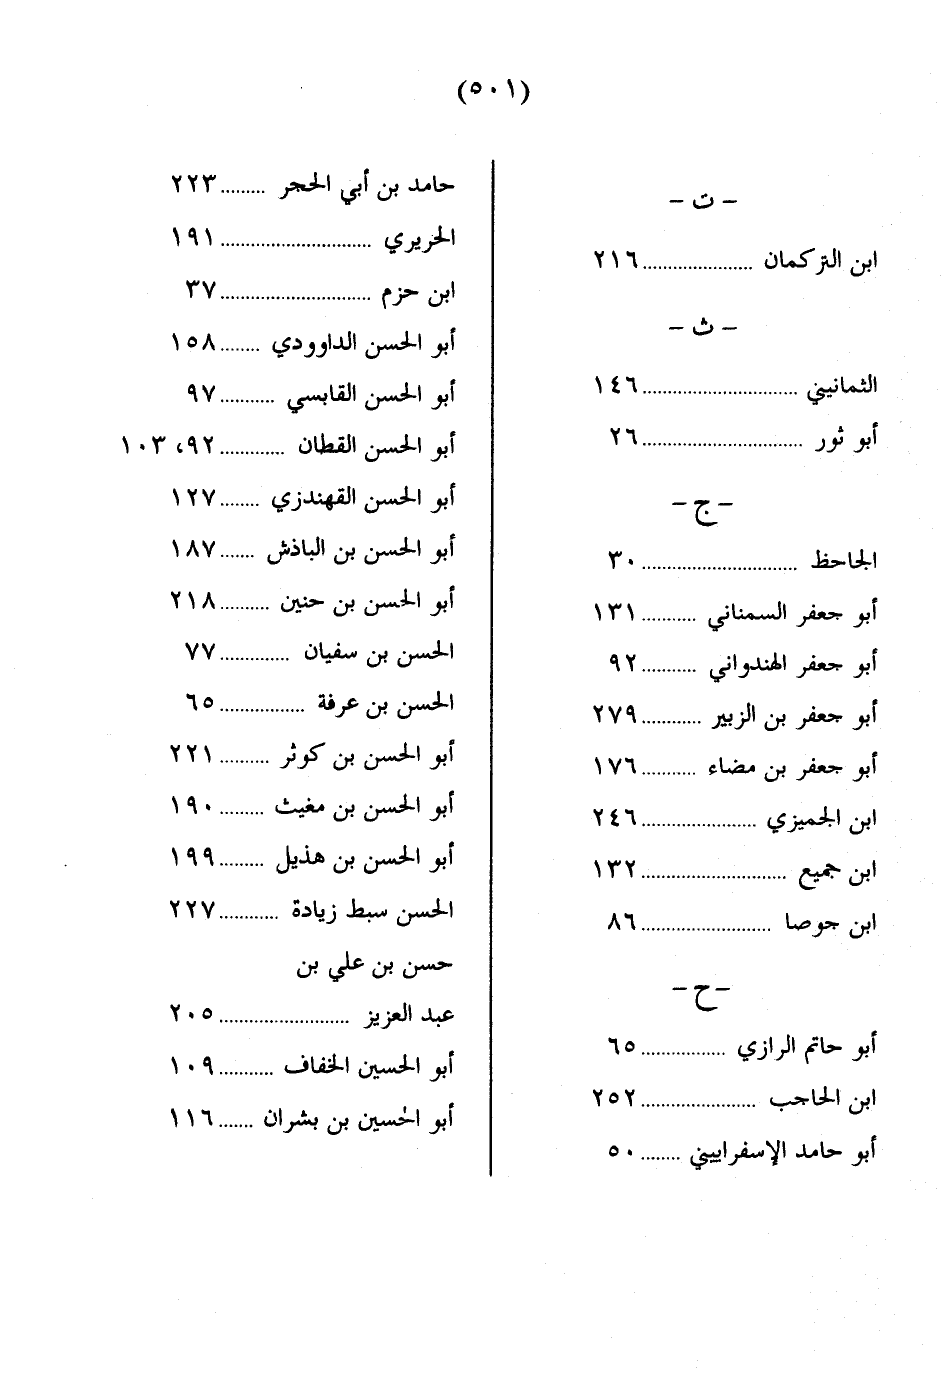 (٥٠١)
- ت -
ابن التركمان ..................... ٢١٦
- ث -
الثمانيني .............................. ١٤٦
أبو ثور ................................ ٢٦
- ج -
الجاحظ .............................. ٣٠
أبو جعفر السمناني ........... ١٣١
أبو جعفر الهندواني ........... ٩٢
أبو جعفر بن الزبير ............ ٢٧٩
أبو جعفر بن مضاء ........... ١٧٦
ابن الجميزي ....................... ٢٤٦
ابن جميع ............................. ١٣٢
ابن حوصا .......................... ٨٦
- ح -
أبو حاتم الرازي ................. ٦٥
ابن الحاجب ....................... ٢٥٢
أبو حامد الإسفراييني ........ ٥٠
حامد بن أبي الحجر ......... ٢٢٣
الحريري .............................. ١٩١
ابن حزم .............................. ٣٧
أبو الحسن الداوودي ........ ١٥٨
أبو الحسن القابسي ........... ٩٧
أبو الحسن القطان ............. ٩٢، ١٠٣
أبو الحسن القهندزي ........ ١٢٧
أبو الحسن بن الباذش ....... ١٨٧
أبو الحسن بن حنين .......... ٢١٨
الحسن بن سفيان .............. ٧٧
الحسن بن عرفة ................. ٦٥
أبو الحسن بن كوثر .......... ٢٢١
أبو الحسن بن مغيث ......... ١٩٠
أبو الحسن بن هذيل ......... ١٩٩
الحسن سبط زيادة ............ ٢٢٧
حسن بن علي بن
عبد العزيز .......................... ٢٠٥
أبو الحسين الخفاف ........... ١٠٩
أبو الحسين بن بشران ....... ١١٦